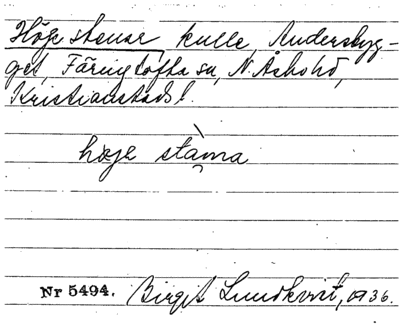 Höje stenar kulle, Andersbyg-
get, Färingtofta sn, N. Åsbo hd,
Kristianstads l.
høje stana
Nr 5494. Birgit Lundkvist, 1936.